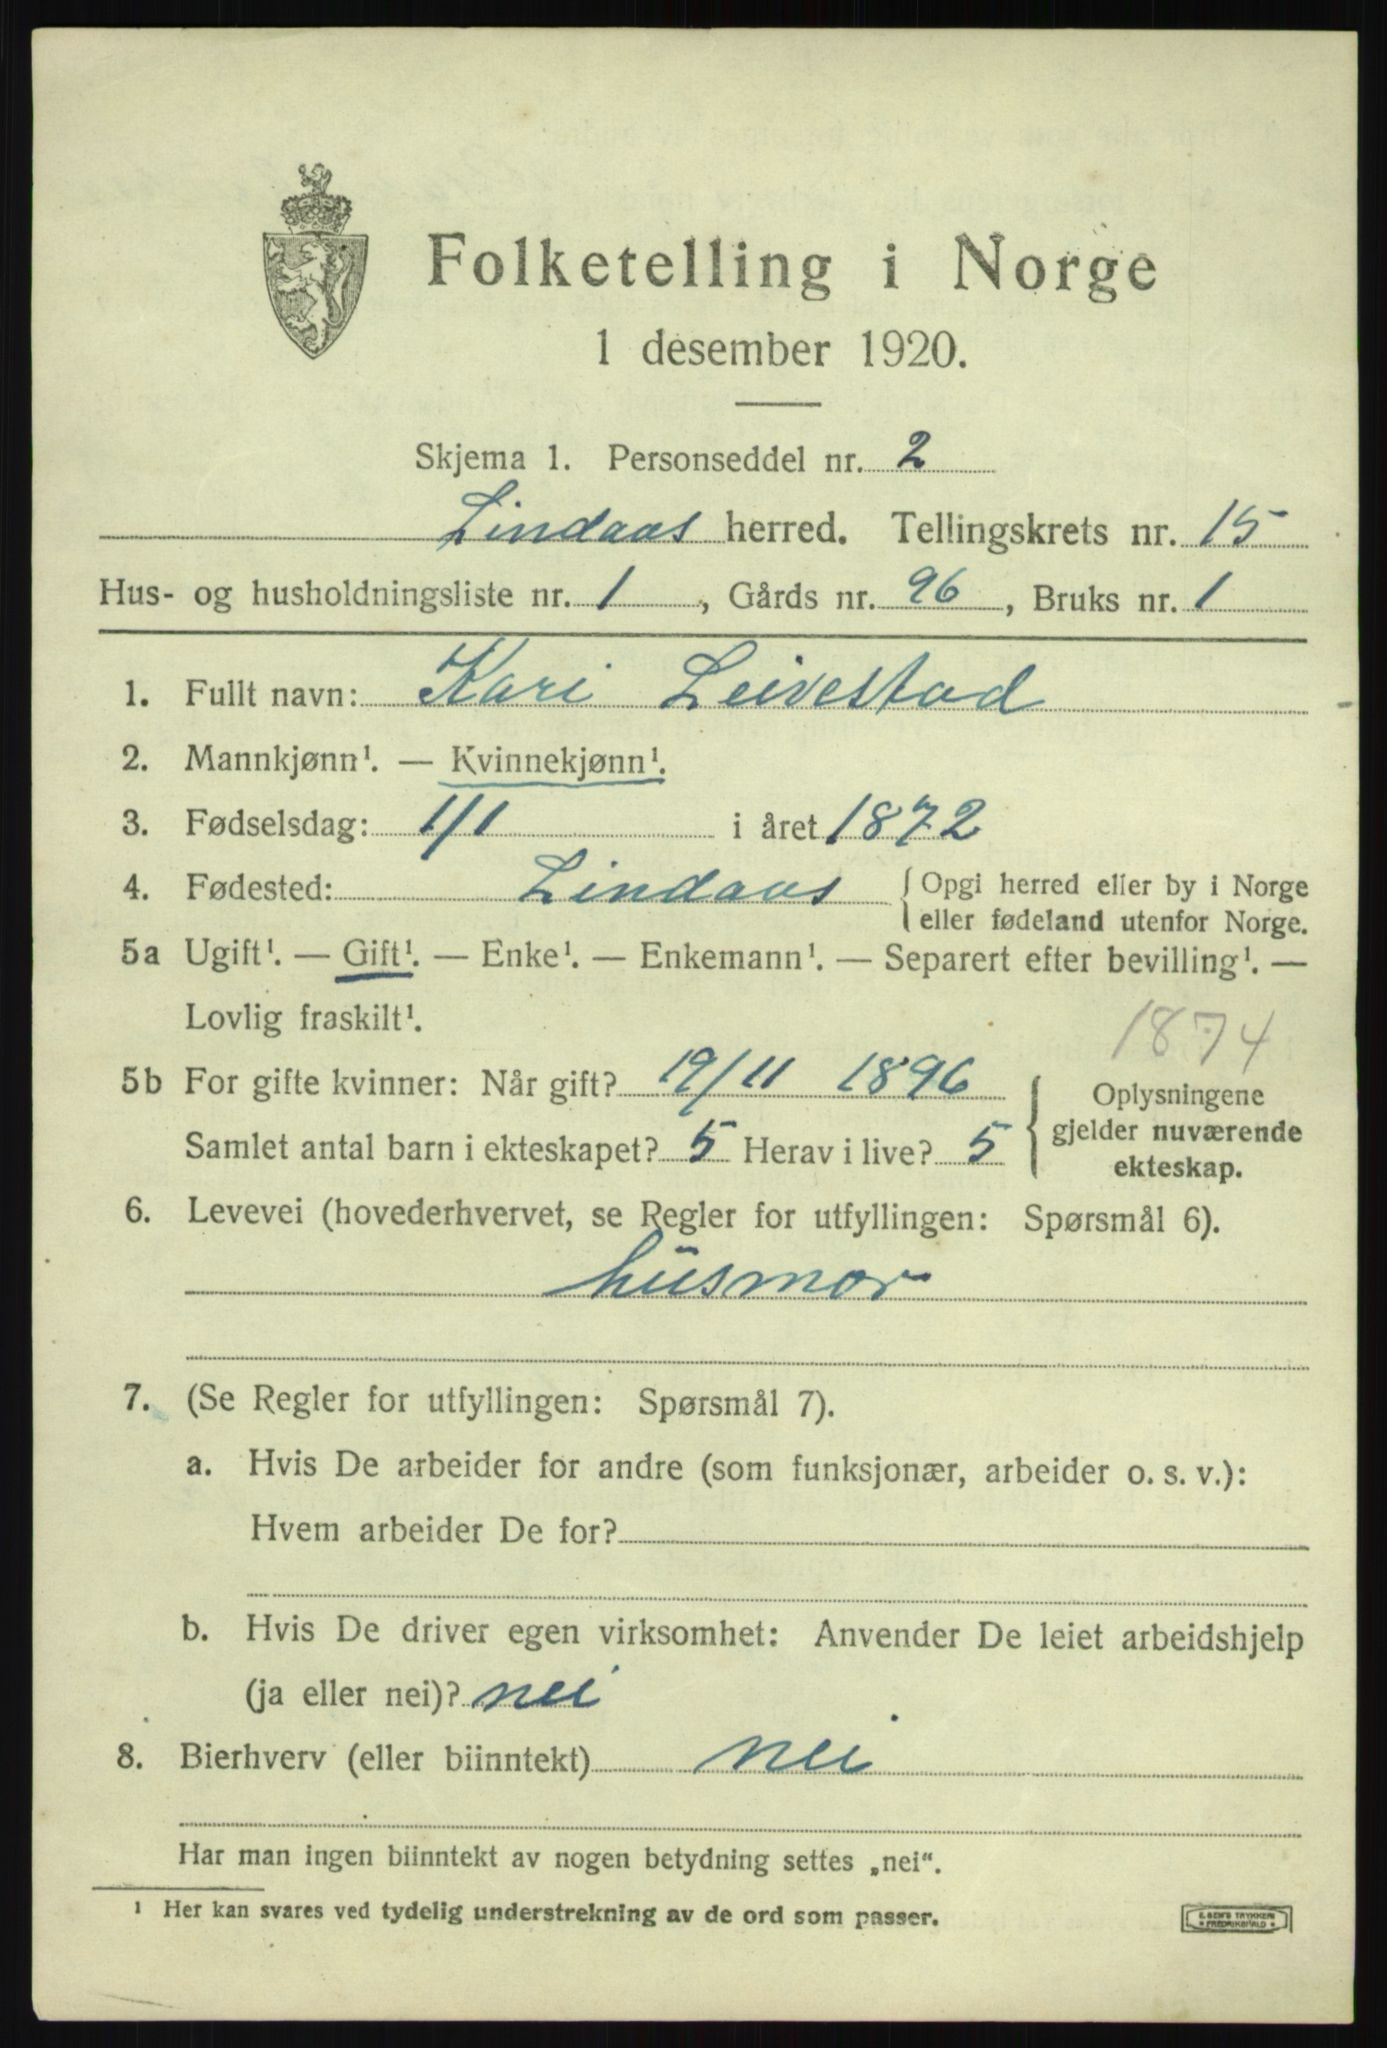 Folketelling i Norge
1 desember 1920.
Skjema 1. Personseddel nr. 2
Lindaas herred. Tellingskrets nr. 15
Hus- og husholdningsliste nr. 1, Gårds nr. 96, Bruks nr. 1
1. Fullt navn: Kari Leivestad
2. Mannkjønn¹. — Kvinnekjønn¹.
3. Fødselsdag: 1/1 i året 1872
4. Fødested: Lindaas {Opgi herred eller by i Norge
eller fødeland utenfor Norge.
5a Ugift¹. — Gift¹. — Enke¹. — Enkemann¹. — Separert efter bevilling¹. —
Lovlig fraskilt¹.
1874
5b For gifte kvinner: Når gift? 19/11 1896
Samlet antal barn i ekteskapet? 5 Herav i live? 5
Oplysningene
gjelder nuværende
ekteskap.
6. Levevei (hovederhvervet, se Regler for utfyllingen: Spørsmål 6).
husmor
7. (Se Regler for utfyllingen: Spørsmål 7).
a. Hvis De arbeider for andre (som funksjonær, arbeider o. s. v.):
Hvem arbeider De for?
b. Hvis De driver egen virksomhet: Anvender De leiet arbeidshjelp
(ja eller nei)? nei
8. Bierhverv (eller biinntekt) nei
Har man ingen biinntekt av nogen betydning settes „nei“.
¹ Her kan svares ved tydelig understrekning av de ord som passer.